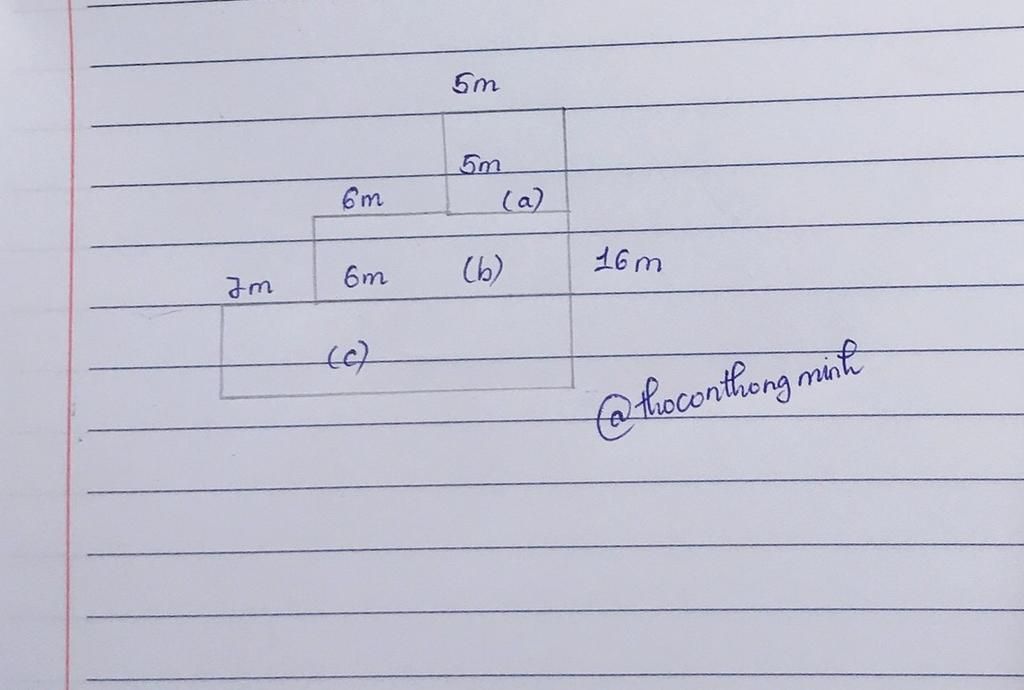 5m
5m
6m
(a)
6m
(b)
16m
7m
(c)
@thoconthongminh